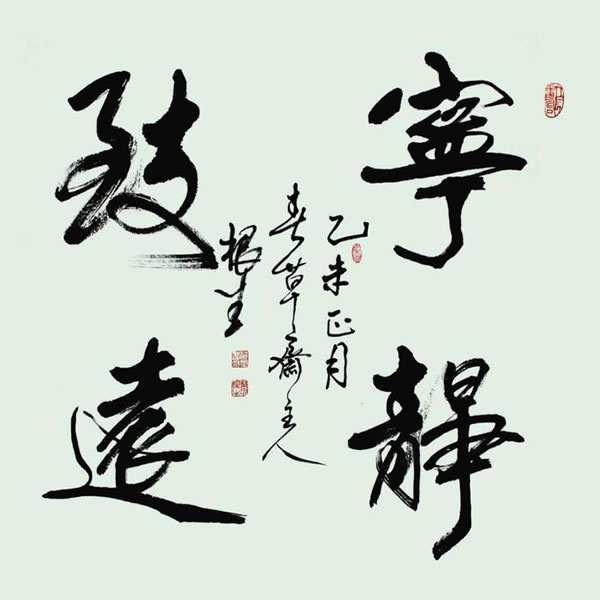 寧靜
致遠
乙未正月
春草齋主人
根生